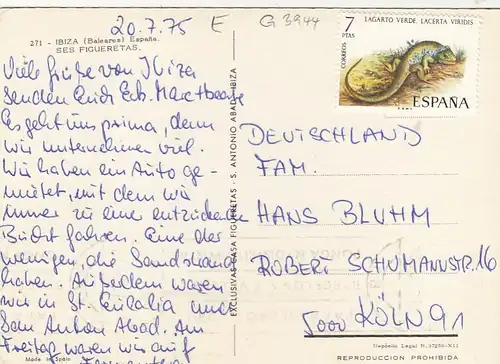 20.7.75 E G 3944
271 - IBIZA (Baleares) España.
SES FIGUERETAS.
Viele Grüße von Ibiza
senden Euch Eck.
Es geht uns prima, denn
wir unternehmen viel.
Wir haben ein Auto ge-
mietet, mit dem wir
immer zu einer entzückenden
Bucht fahren. Eine der
wenigen, die Sandstrand
haben. Außerdem waren
wir in St. Eulalia und
San Anton Abad. Am
Freitag waren wir auf
Formentera
Made in Spain
EXCLUSIVAS CASA FIGUERETAS - S. ANTONIO ABAD - IBIZA
7
PTAS
LAGARTO VERDE. LACERTA VIRIDIS
CORREOS
ESPAÑA
DEUTSCHLAND
FAM.
HANS BLUHM
ROBERT SCHUMANNSTR.16
5000 KÖLN 91
Depósito Legal B. 37250-XII
REPRODUCCION PROHIBIDA